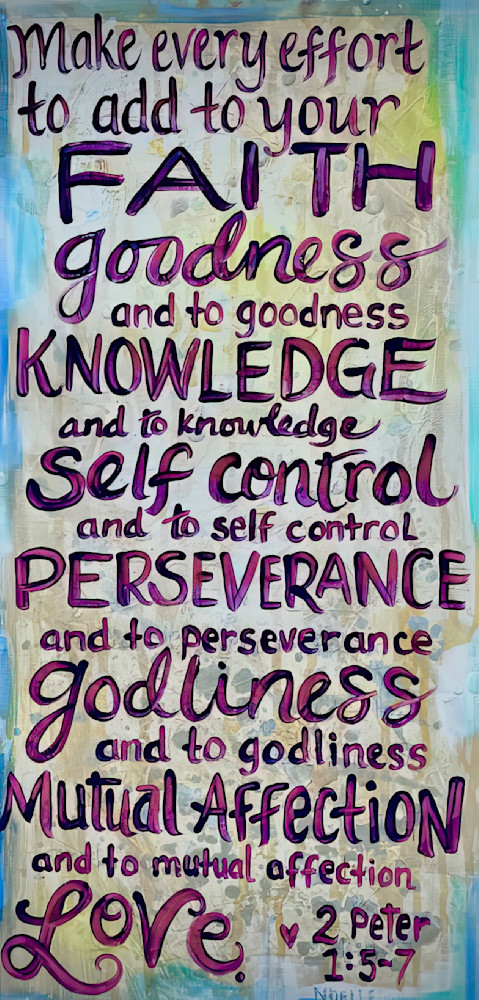 Make every effort
to add to your
FAITH
goodness
and to goodness
KNOWLEDGE
and to knowledge
Self control
and to self control
PERSEVERANCE
and to perseverance
godliness
and to godliness
Mutual Affection
and to mutual affection
Love.
♥ 2 Peter
1:5-7